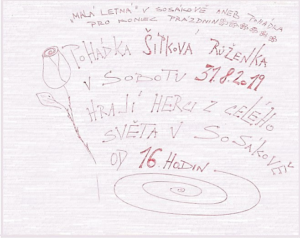 „MALÁ LETNÁ“ V SOSÁKOVĚ ANEB POHÁDKA
PRO KONEC PRÁZDNIN
POHÁDKA ŠÍPKOVÁ RŮŽENKA
V SOBOTU 31.8.2019
HRAJÍ HERCI Z CELÉHO
SVĚTA V SOSÁKOVĚ
OD 16 HODIN